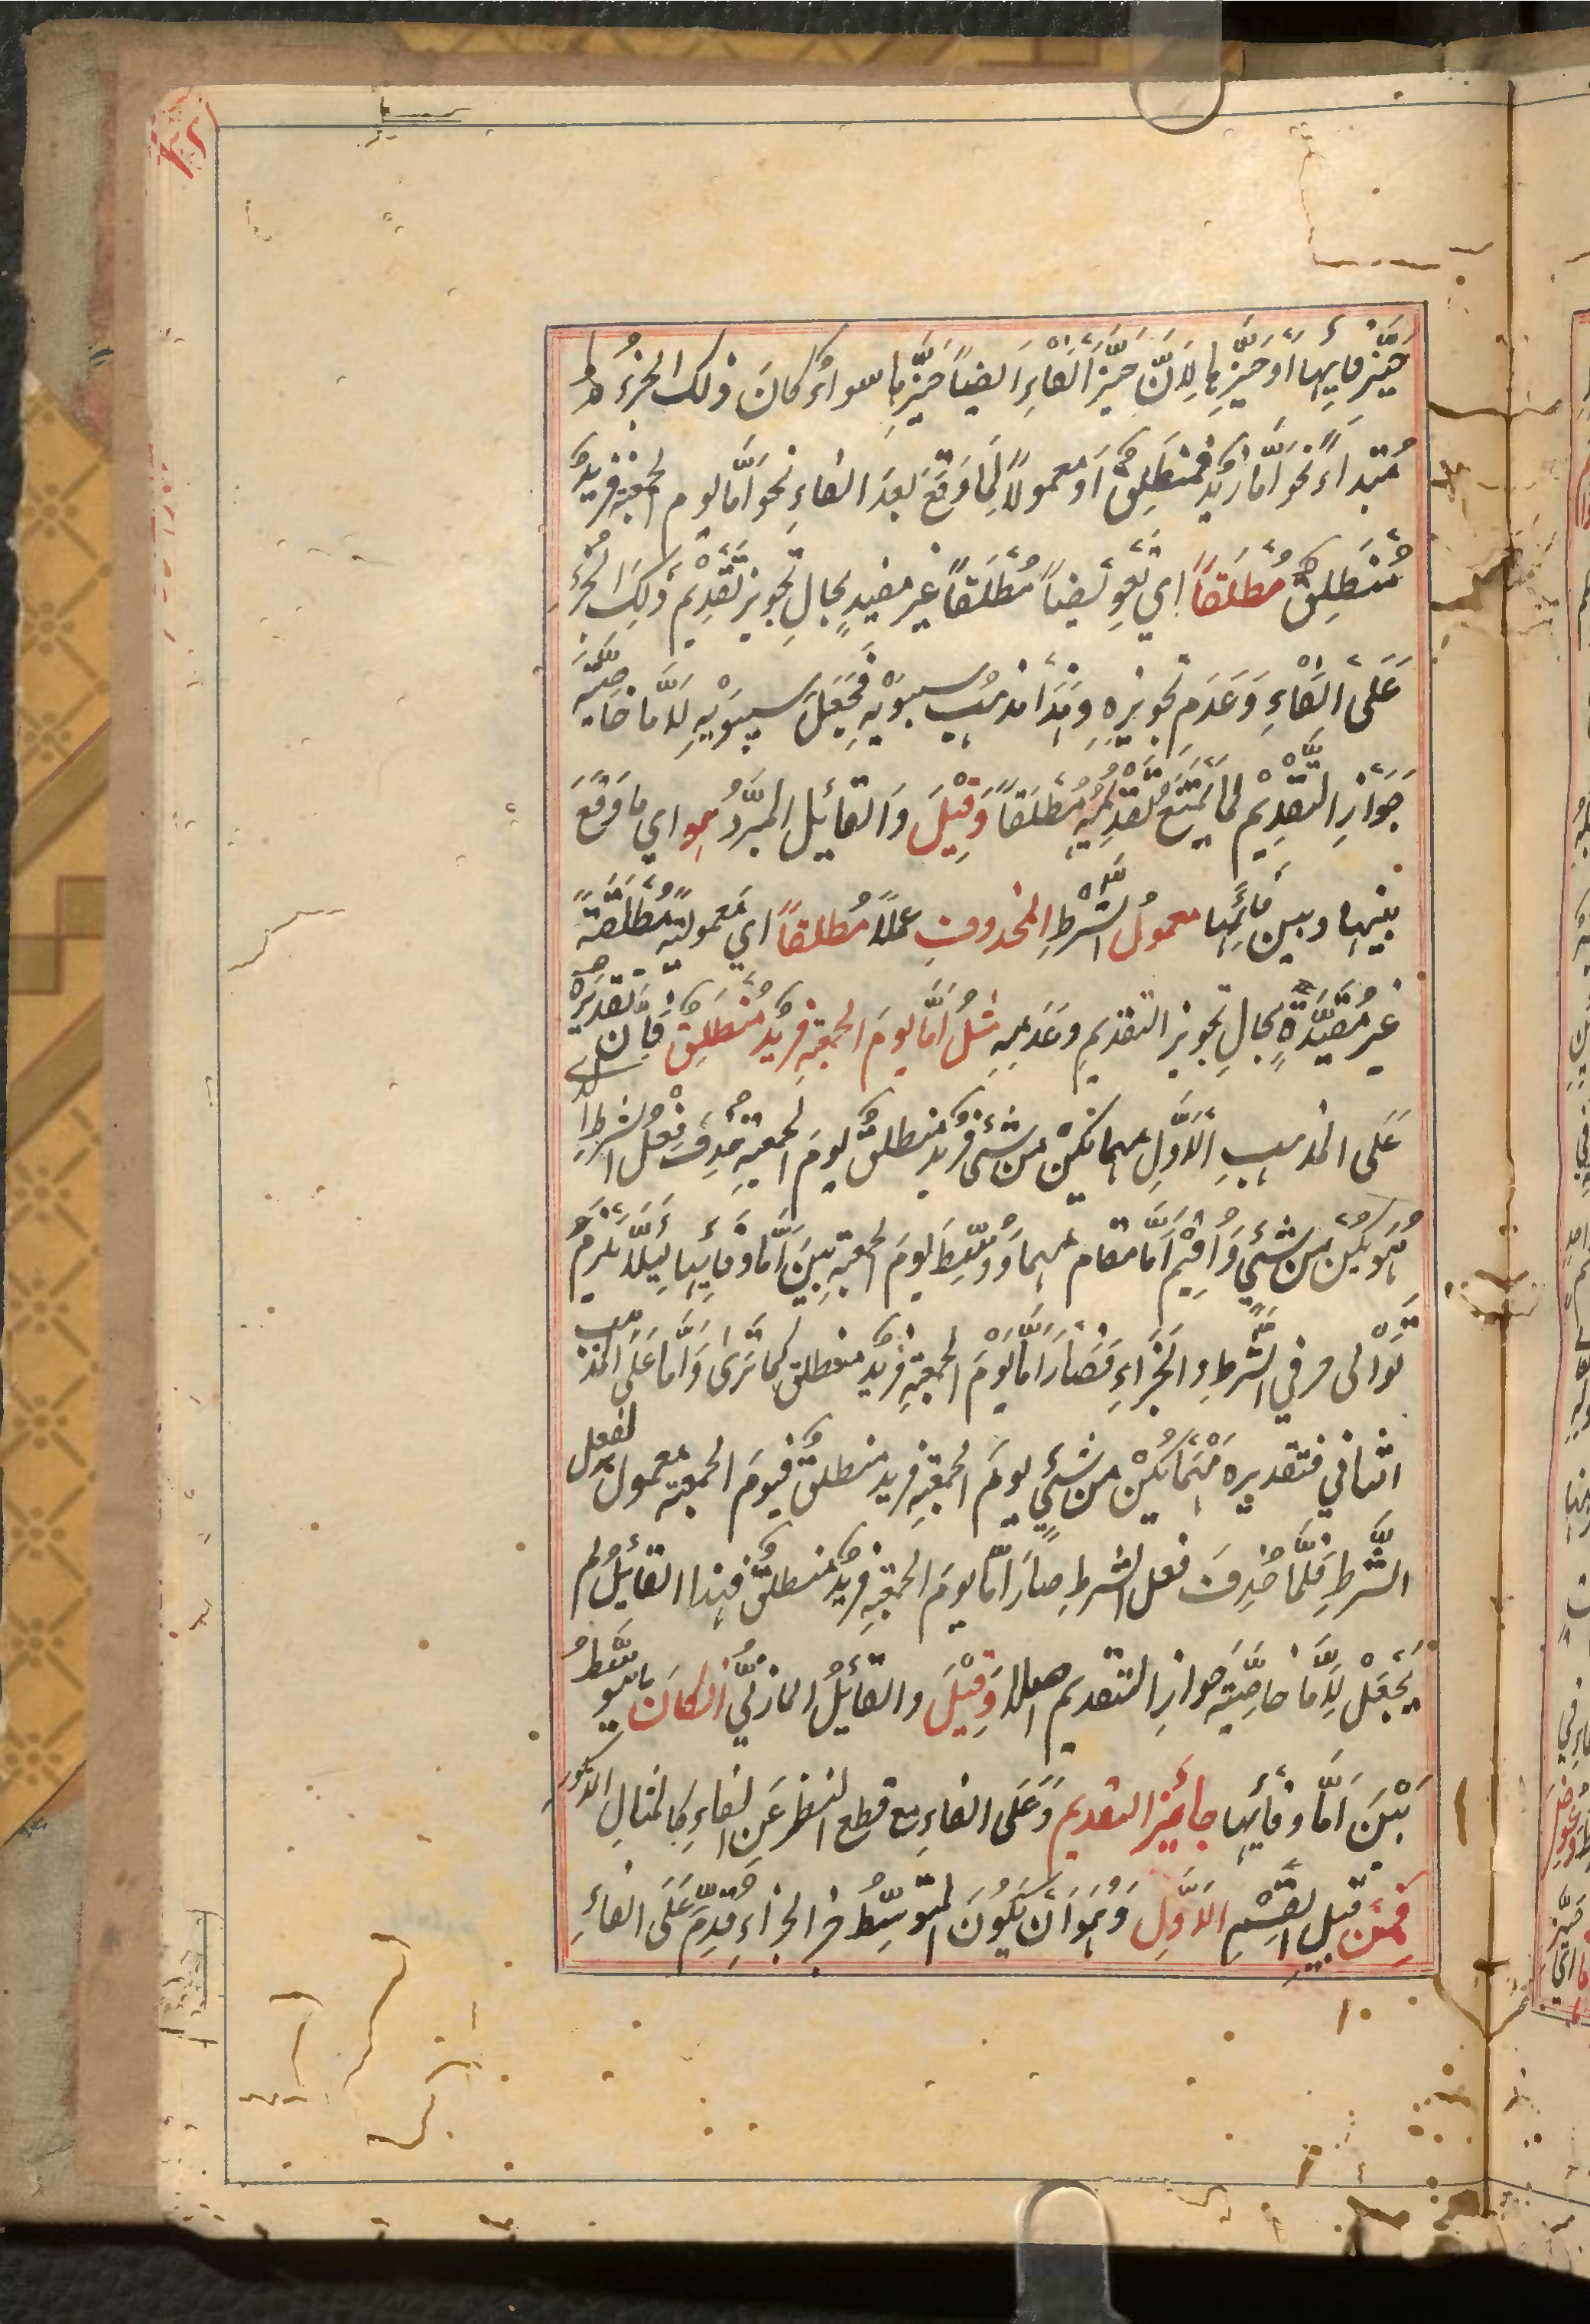 حَيِّزِ فَائِهَا اَوْ حَيِّزِهَا لِاَنَّ حَيِّزَ الْفَاءِ اَيضًا حَيِّزُهَا سواءٌ كانَ ذلك الجزءُ
مُبتداءً نحو اَمَّا زَيْدٌ فمنطَلِقٌ اَو معمولاً لِمَا وَقَعَ بعدَ الفاءِ نحو اَمَّا يوم الجمعة فزيدٌ
مُنطَلِقٌ مُطلَقًا اي تَعْوِيضًا مُطْلَقًا غير مقيدٍ بحالِ تجويز تَقْدِيْمِ ذلِكَ الجُزْءِ
عَلَى الْفَاءِ وَعَدَمِ تجويزِهِ وَهٰذَا مذهبُ سيبوَيْهِ فَجَعَلَ سيبوَيْهِ لِاَمَّا خاصِيَّةَ
جَوَازِ التَّقْدِيْمِ لِمَا يَمْتَنِعُ تَقْدِيْمُهُ مُطْلَقًا وَقِيْلَ وَالقائِل المبرَّدُ هو اي ما وَقَعَ
بينها وبين فَائِهَا معمولُ الشَّرْطِ المحذوفِ عملاً مُطلقًا اي مَعموليَّةً مُطْلَقَةً
غير مُقَيَّدَةٍ بحالِ تجويز التقديمِ وعَدَمِهِ مثلُ اَمَّا يومَ الجمعةِ فزيدٌ مُنطَلِقٌ فان تَقْدِيْرَه
عَلَى المذهبِ الْاَوَّلِ مهما يكنْ من شيءٍ فزيدٌ منطلقٌ يومَ الجمعةِ حُذِفَ فِعْلُ الشرطِ الذي
هُو يكُنْ مِن شيءٍ وَاُقِيْمَ اَمَّا مقام مهما وَوُسِّطَ يومَ الجمعةِ بَيْنَ اَمَّا وفائِهَا لِئَلَّا يَلْزَمَ
تَوَالى حرفي الشَّرطِ والجَزَاءِ فَصَارَ اَمَّا يَوْمَ الجمعةِ فزيدٌ منطلق كما تَرٰى وَاَمَّا عَلَى المذهب
الثاني فتقديره مَهْمَا يكُنْ من شيءٍ يومَ الجمعةِ فزيد منطلقٌ فيومَ الجمعة معمول لفعل
الشَّرطِ فلَمَّا حُذِفَ فعل الشرطِ صَارَ اَمَّا يومَ الجمعةِ فزيدٌ منطلقٌ فهذا القائِلُ لم
يَجْعَلْ لِاَمَّا خاصِيَّةَ جوازِ التقديم اصلا وَقِيْلَ والقائِلُ المازنيُّ ان كانَ ما يتوسَّطُ
بَيْنَ اَمَّا وفائِها جائِز التقديم عَلَى الفاءِ مع قطع النظر عَنِ الفاءِ كالمثالِ المذكور
فَمِنْ قبيلِ القِسْمِ الْاَوَّلِ وَهُوَ اَنْ يكُونَ المتوسِّطُ من الجزاءِ قُدِّمَ عَلَى الفاءِ